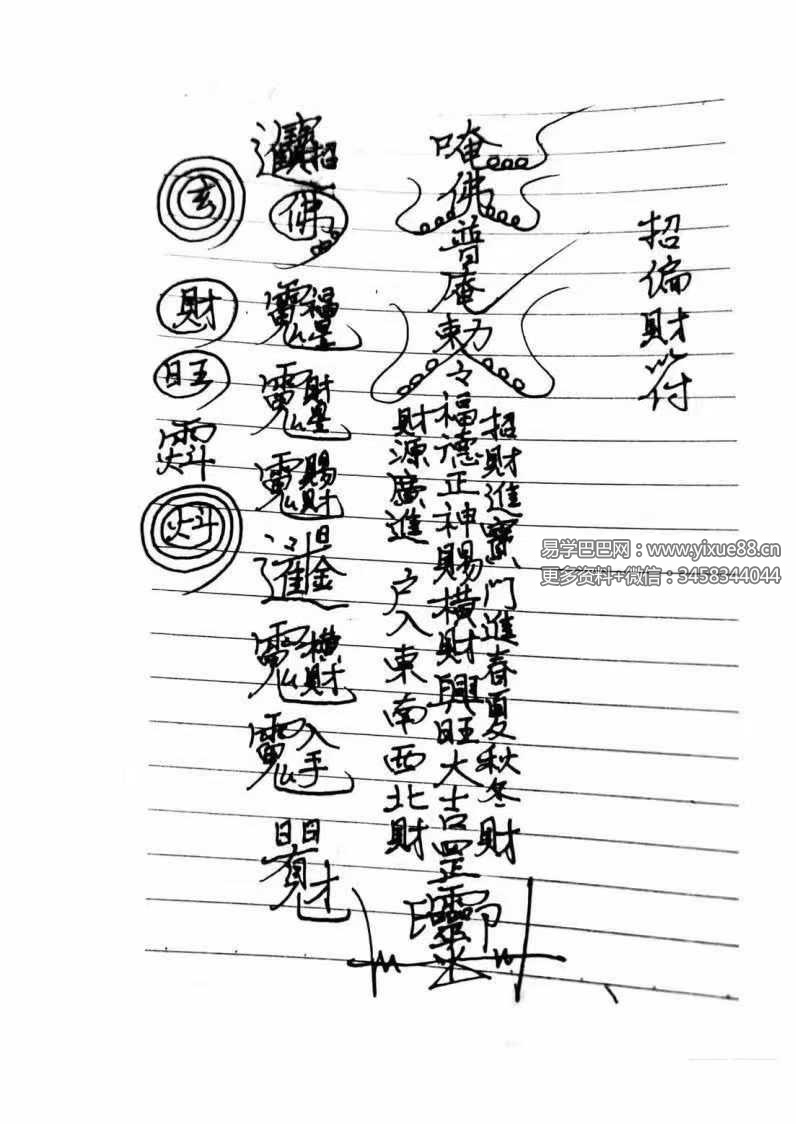 招偏財符
唵佛普庵勅令福德正神賜橫財興旺大吉罡正靈
招財進寶門進春夏秋冬財
財源廣進 户入東南西北財
招
佛
福星
財星
賜財
橫財
入手
日日有財
玄
財
旺
易学巴巴网：www.yixue88.cn
更多资料+微信：3458344044